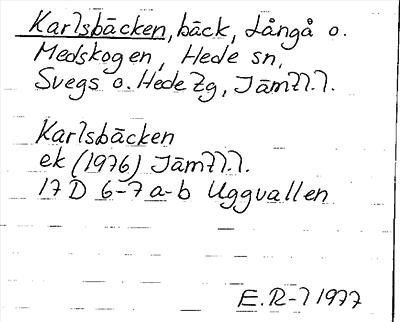 Karlsbäcken, bäck, Långå o.
Medskogen, Hede sn,
Svegs o. Hede Zg, Jämtl.l.
Karlsbäcken
ek (1976) Jämtl.l.
17 D 6-7 a-b Uggvallen
E.R-l 1977